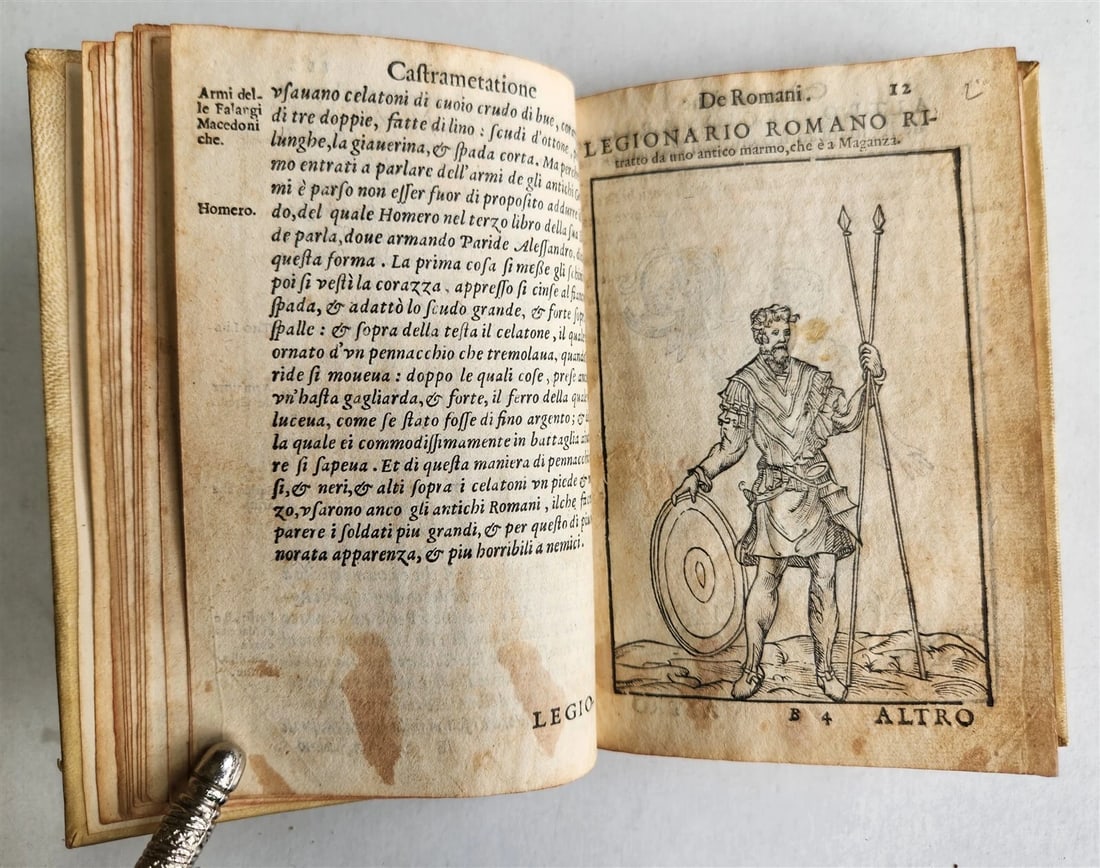 Caſtrametatione
Armi del-
le Falangi
Macedoni
che.
Homero.
vſauano celatoni di cuoio crudo di bue,
di tre doppie, fatte di lino: ſcudi d'ottone,
lunghe, la giauerina, & ſpada corta. Ma
mo entrati a parlare dell'armi de gli antichi
mi è parſo non eſſer fuor di propoſito addurre
do, del quale Homero nel terzo libro della ſua
de parla, doue armando Paride Aleſſandro,
queſta forma. La prima coſa ſi meſſe gli
poi ſi veſtì la corazza, appreſſo ſi cinſe al
ſpada, & adattò lo ſcudo grande, & forte
ſpalle: & ſopra della teſta il celatone, il
ornato d'vn pennacchio che tremolaua,
ride ſi moueua: doppo le quali coſe, preſe
vn'haſta gagliarda, & forte, il ferro della
luceua, come ſe ſtato foſſe di fino argento;
la quale ei commodiſſimamente in battaglia
re ſi ſapeua. Et di queſta maniera di
ſi, & neri, & alti ſopra i celatoni vn piede
zo, vſarono anco gli antichi Romani, ilche
parere i ſoldati piu grandi, & per queſto di
norata apparenza, & piu horribili a nemici.
LEGIO
De Romani. 12
LEGIONARIO ROMANO RI-
tratto da uno antico marmo, che è a Maganza.
B 4 ALTRO